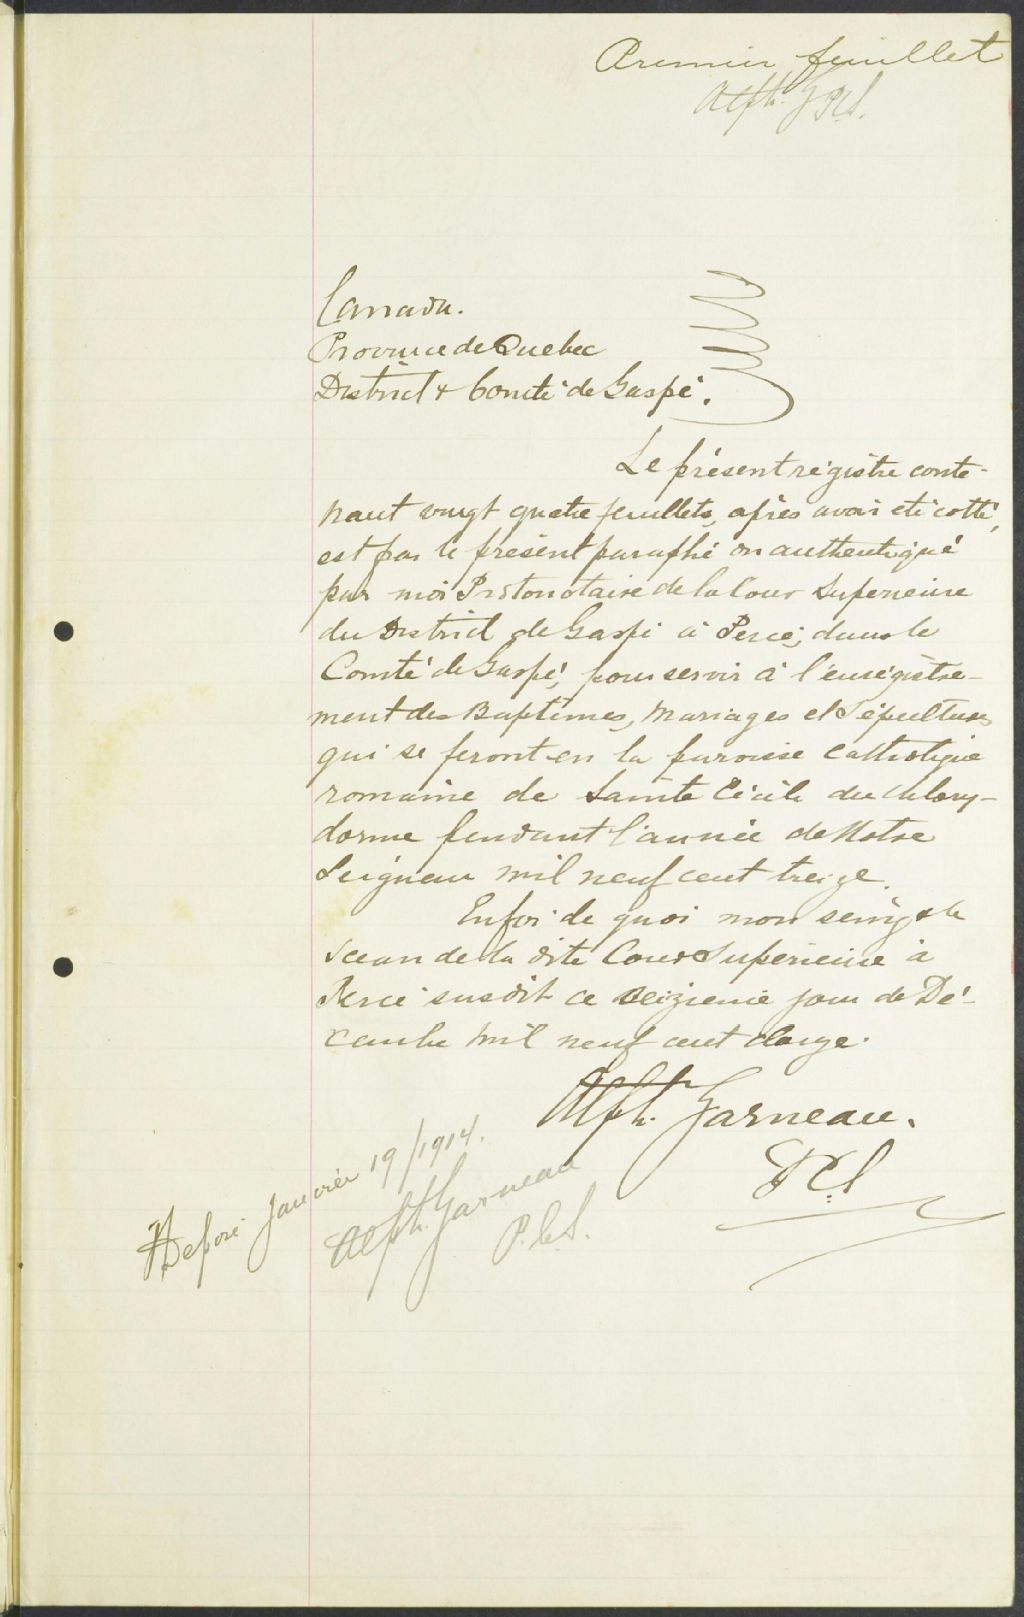 Premier feuillet
Alph. G PCS.
Canada.
Province de Quebec
District & Comté de Gaspé.
Le présent régistre conte-
nant vingt quatre feuillets, après avoir été cotté,
est par le présent paraphé on authentiqué
par moi Protonotaire de la Cour Superieure
du District de Gaspé à Percé, dans le
Comté de Gaspé, pour servir à l'enrégistre-
ment des Baptêmes, Mariages et Sépultures
qui se feront en la paroisse Catholique
romaine de Sainte Cécile du Clory-
dorme pendant l'année de Notre
Seigneur mil neuf cent treize.
En foi de quoi mon seing & le
sceau de la dite Cour Supérieure à
Percé susdit ce seizieme jour de Dé-
cembre mil neuf cent douze.
Alph. Garneau.
PCS
Deposé Janvier 19/1914.
Alph. Garneau
P.C.S.